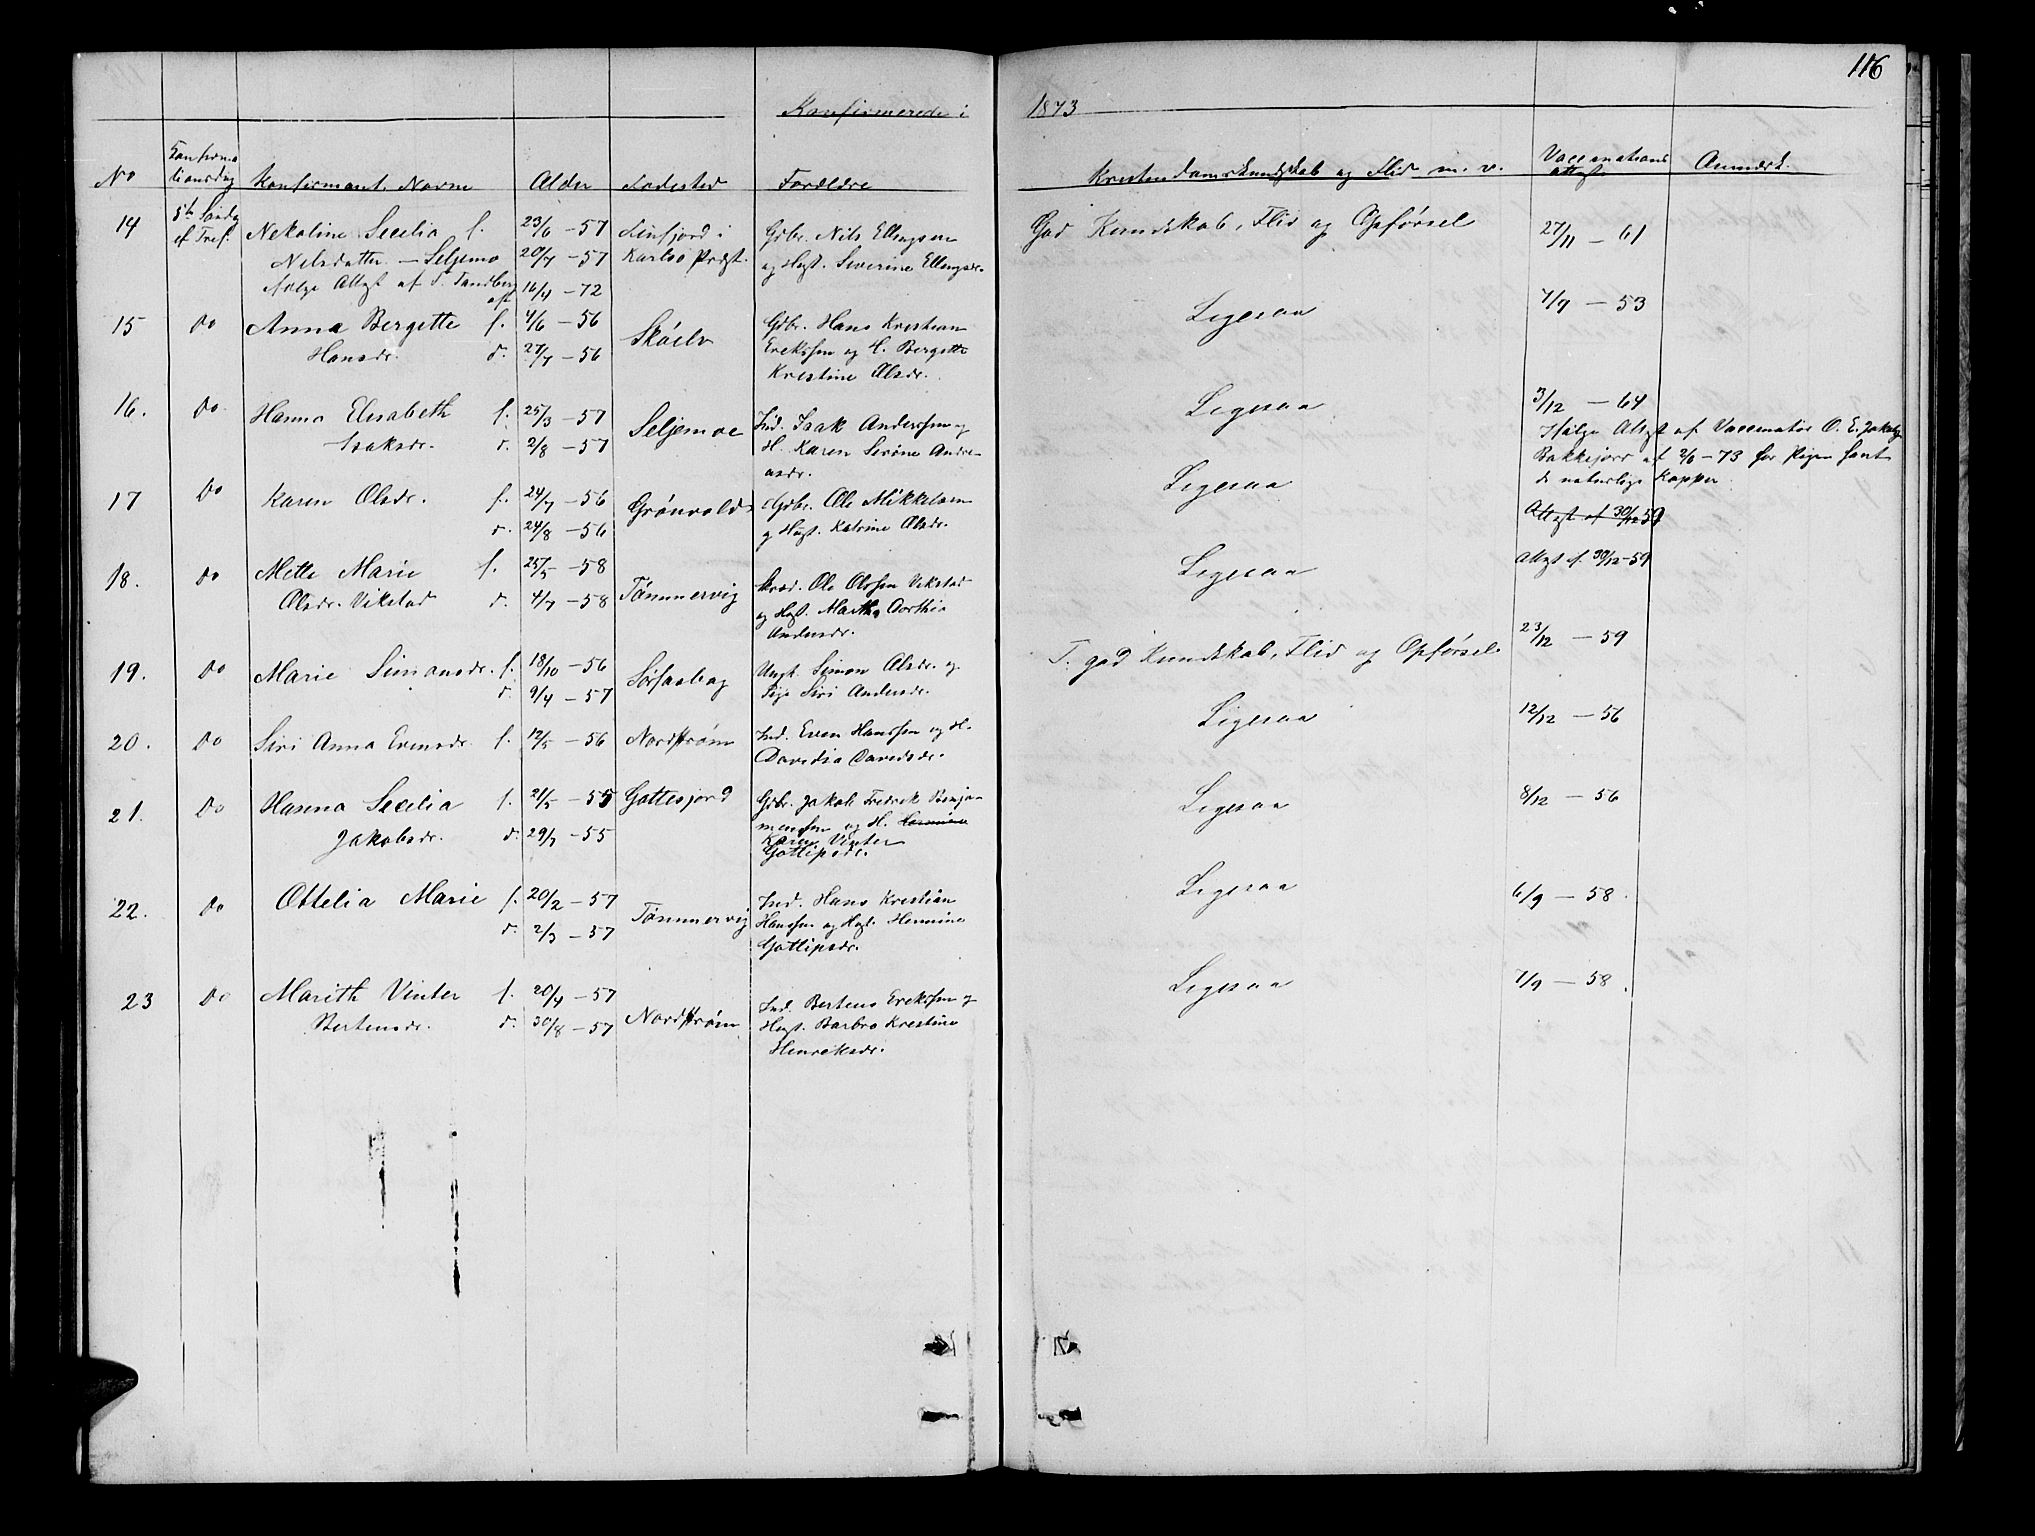 116
Konfirmerede i 1873
No Konfirmationsdag Konfirmant. Navne Alder Fødested Forældre Kristendomskundskab og Flid m. v. Vaccinations attest Anmærk.
14 5te Sønd. ef Tref. Nekoline Secelia f. 23/6 – 57 Lenfjord i Gdbr. Nils Ellingsen God Kundskab, Flid og Opførsel 27/11 – 61
Nilsdatter – Seljemo 20/7 – 57 Karlsø Præst. og Hust. Severine Ellingsdr.
ifølge Attest af T. Sandberg
af 16/4 – 72
15 Do Anna Bergette f. 4/6 – 56 Skøelv Gdbr. Hans Kristian Ligesaa 7/9 – 53
Hansdr. d. 27/7 – 56 Erikssen og H. Bergette
Kristine Olsdr.
16. Do Hanna Elisabeth f. 25/3 – 57 Seljemoe Ind. Isak Anderssen og Ligesaa 3/12 – 64
Isaksdr. d. 2/8 – 57 H. Karen Serine Andre-
asdr.
Ifølge Attest af Vaccinatør O. E. Jakobs
Bakkejord af 2/6 – 73 har Pigen havt
de naturlige Kopper
17 Do Karen Olsdr. f. 24/7 – 56 Grønvold Gdbr. Ole Mikkelsen Ligesaa Attest af 30/12 59
d. 24/8 – 56 og Hust. Katrine Olsdr.
18. Do Mette Marie f. 25/5 – 58 Tømmervig Ole Olssen Vikstad Ligesaa Attest f. 30/12 – 59
Olsdr. Vikstad d. 4/7 – 58 og Hust. Martha Dorthia
Andersdr.
19. Do Marie Simonsdr. f. 18/10 – 56 Ungk. Simon Olsdr. og T. god Kundskab, Flid og Opførsel 23/12 – 59
d. 9/4 – 57 Pige Siri Andersdr.
20. Do Siri Anna Evensdr. f. 12/5 – 56 Nordstrøm Ind. Even Hanssen og H. Ligesaa 12/12 – 56
Davidia Davidsdr.
21. Do Hanna Secelia f. 21/5 – 55 Gottesjord Gdbr. Jakob Fredrik Benja- Ligesaa 8/12 – 56
Jakobsdr. d. 29/7 – 55 mensen og H. Hermine
Karen Vinter
Gottlipsdr.
22. Do Ottelia Marie f. 20/2 – 57 Tømmervig Ind. Hans Kristian Ligesaa 6/9 – 58.
d. 2/3 – 57 Hanssen og Hust. Hermine
Gottlipsdr.
23 Do Marith Vinter f. 20/4 – 57 Nordstrøm Ind. Bertens Erikssen og Ligesaa 7/9 – 58.
Bertensdr. d. 30/8 – 57 Hust. Barbro Krestine
Henriksdr.